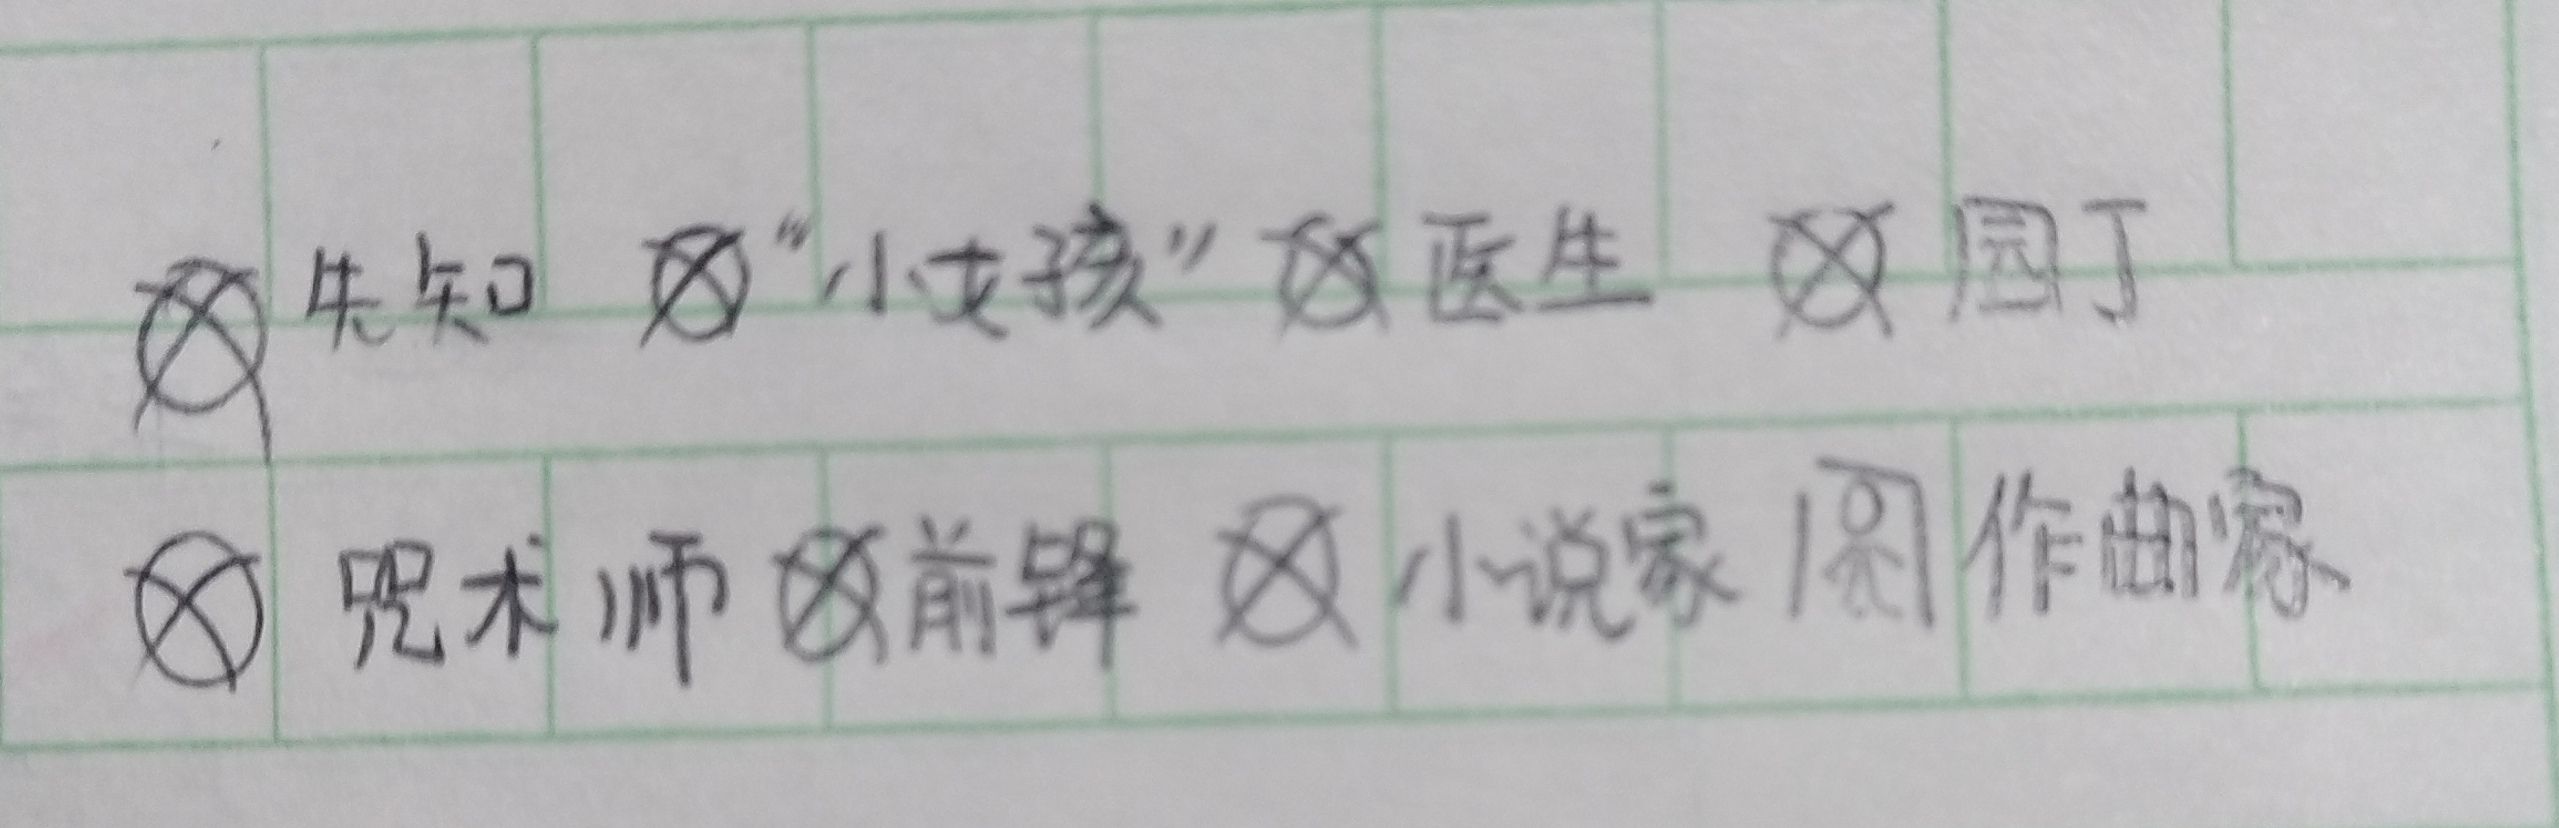 先知 “小女孩” 医生 园丁
咒术师 前锋 小说家 作曲家